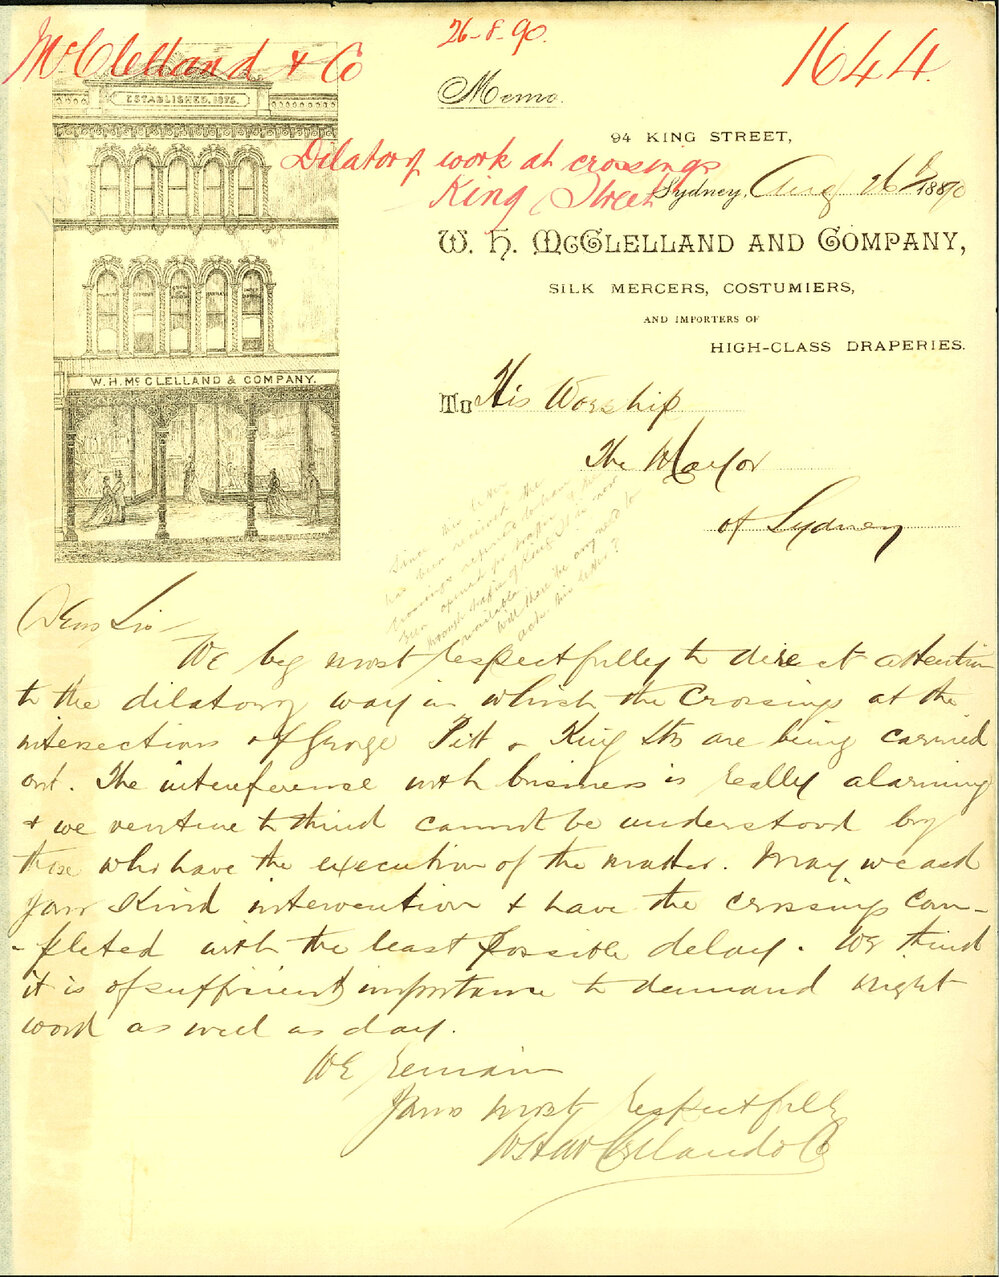 McClelland & Co
26-8-90.
1644.
Memo.
ESTABLISHED. 1875.
94 KING STREET,
Dilatory work at crossings
King Street
Sydney, Aug 26th 1890
W. H. McCLELLAND AND COMPANY,
SILK MERCERS, COSTUMIERS,
AND IMPORTERS OF
HIGH-CLASS DRAPERIES.
W. H. McCLELLAND & COMPANY.
To His Worship
The Mayor
of Sydney
Since this letter
has been received the
crossings referred to have
been opened for traffic & the
through traffic of King St is now
available
Will there be any need to
ack. this letter?
Dear Sir
We beg most respectfully to direct attention
to the dilatory way in which the crossings at the
intersections of George Pitt & King Sts are being carried
out. The interference with business is really alarming
& we venture to think cannot be understood by
those who have the execution of the matter. May we ask
your kind intervention & have the crossings com-
-pleted with the least possible delay. We think
it is of sufficient importance to demand night
work as well as day.
We remain
Yours most respectfully
W H McClelland & Co